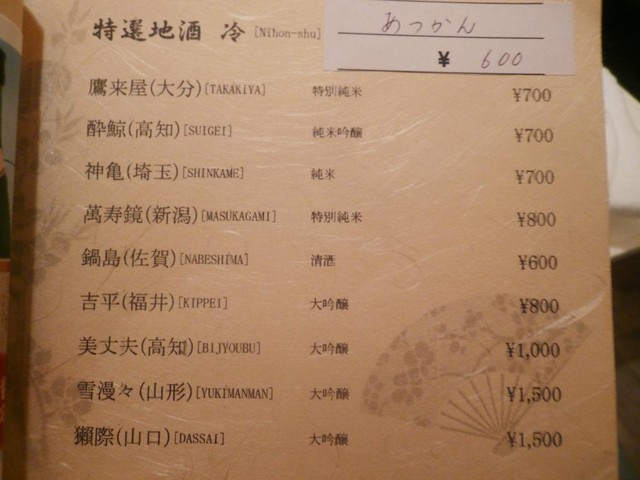 特選地酒 冷 [Nihon-shu]
あつかん
¥ 600
鷹来屋(大分)[TAKAKIYA] 特別純米 ¥700
酔鯨(高知)[SUIGEI] 純米吟醸 ¥700
神亀(埼玉)[SHINKAME] 純米 ¥700
萬寿鏡(新潟)[MASUKAGAMI] 特別純米 ¥800
鍋島(佐賀)[NABESHIMA] 清酒 ¥600
吉平(福井)[KIPPEI] 大吟醸 ¥800
美丈夫(高知)[BIJYOUBU] 大吟醸 ¥1,000
雪漫々(山形)[YUKIMANMAN] 大吟醸 ¥1,500
獺際(山口)[DASSAI] 大吟醸 ¥1,500